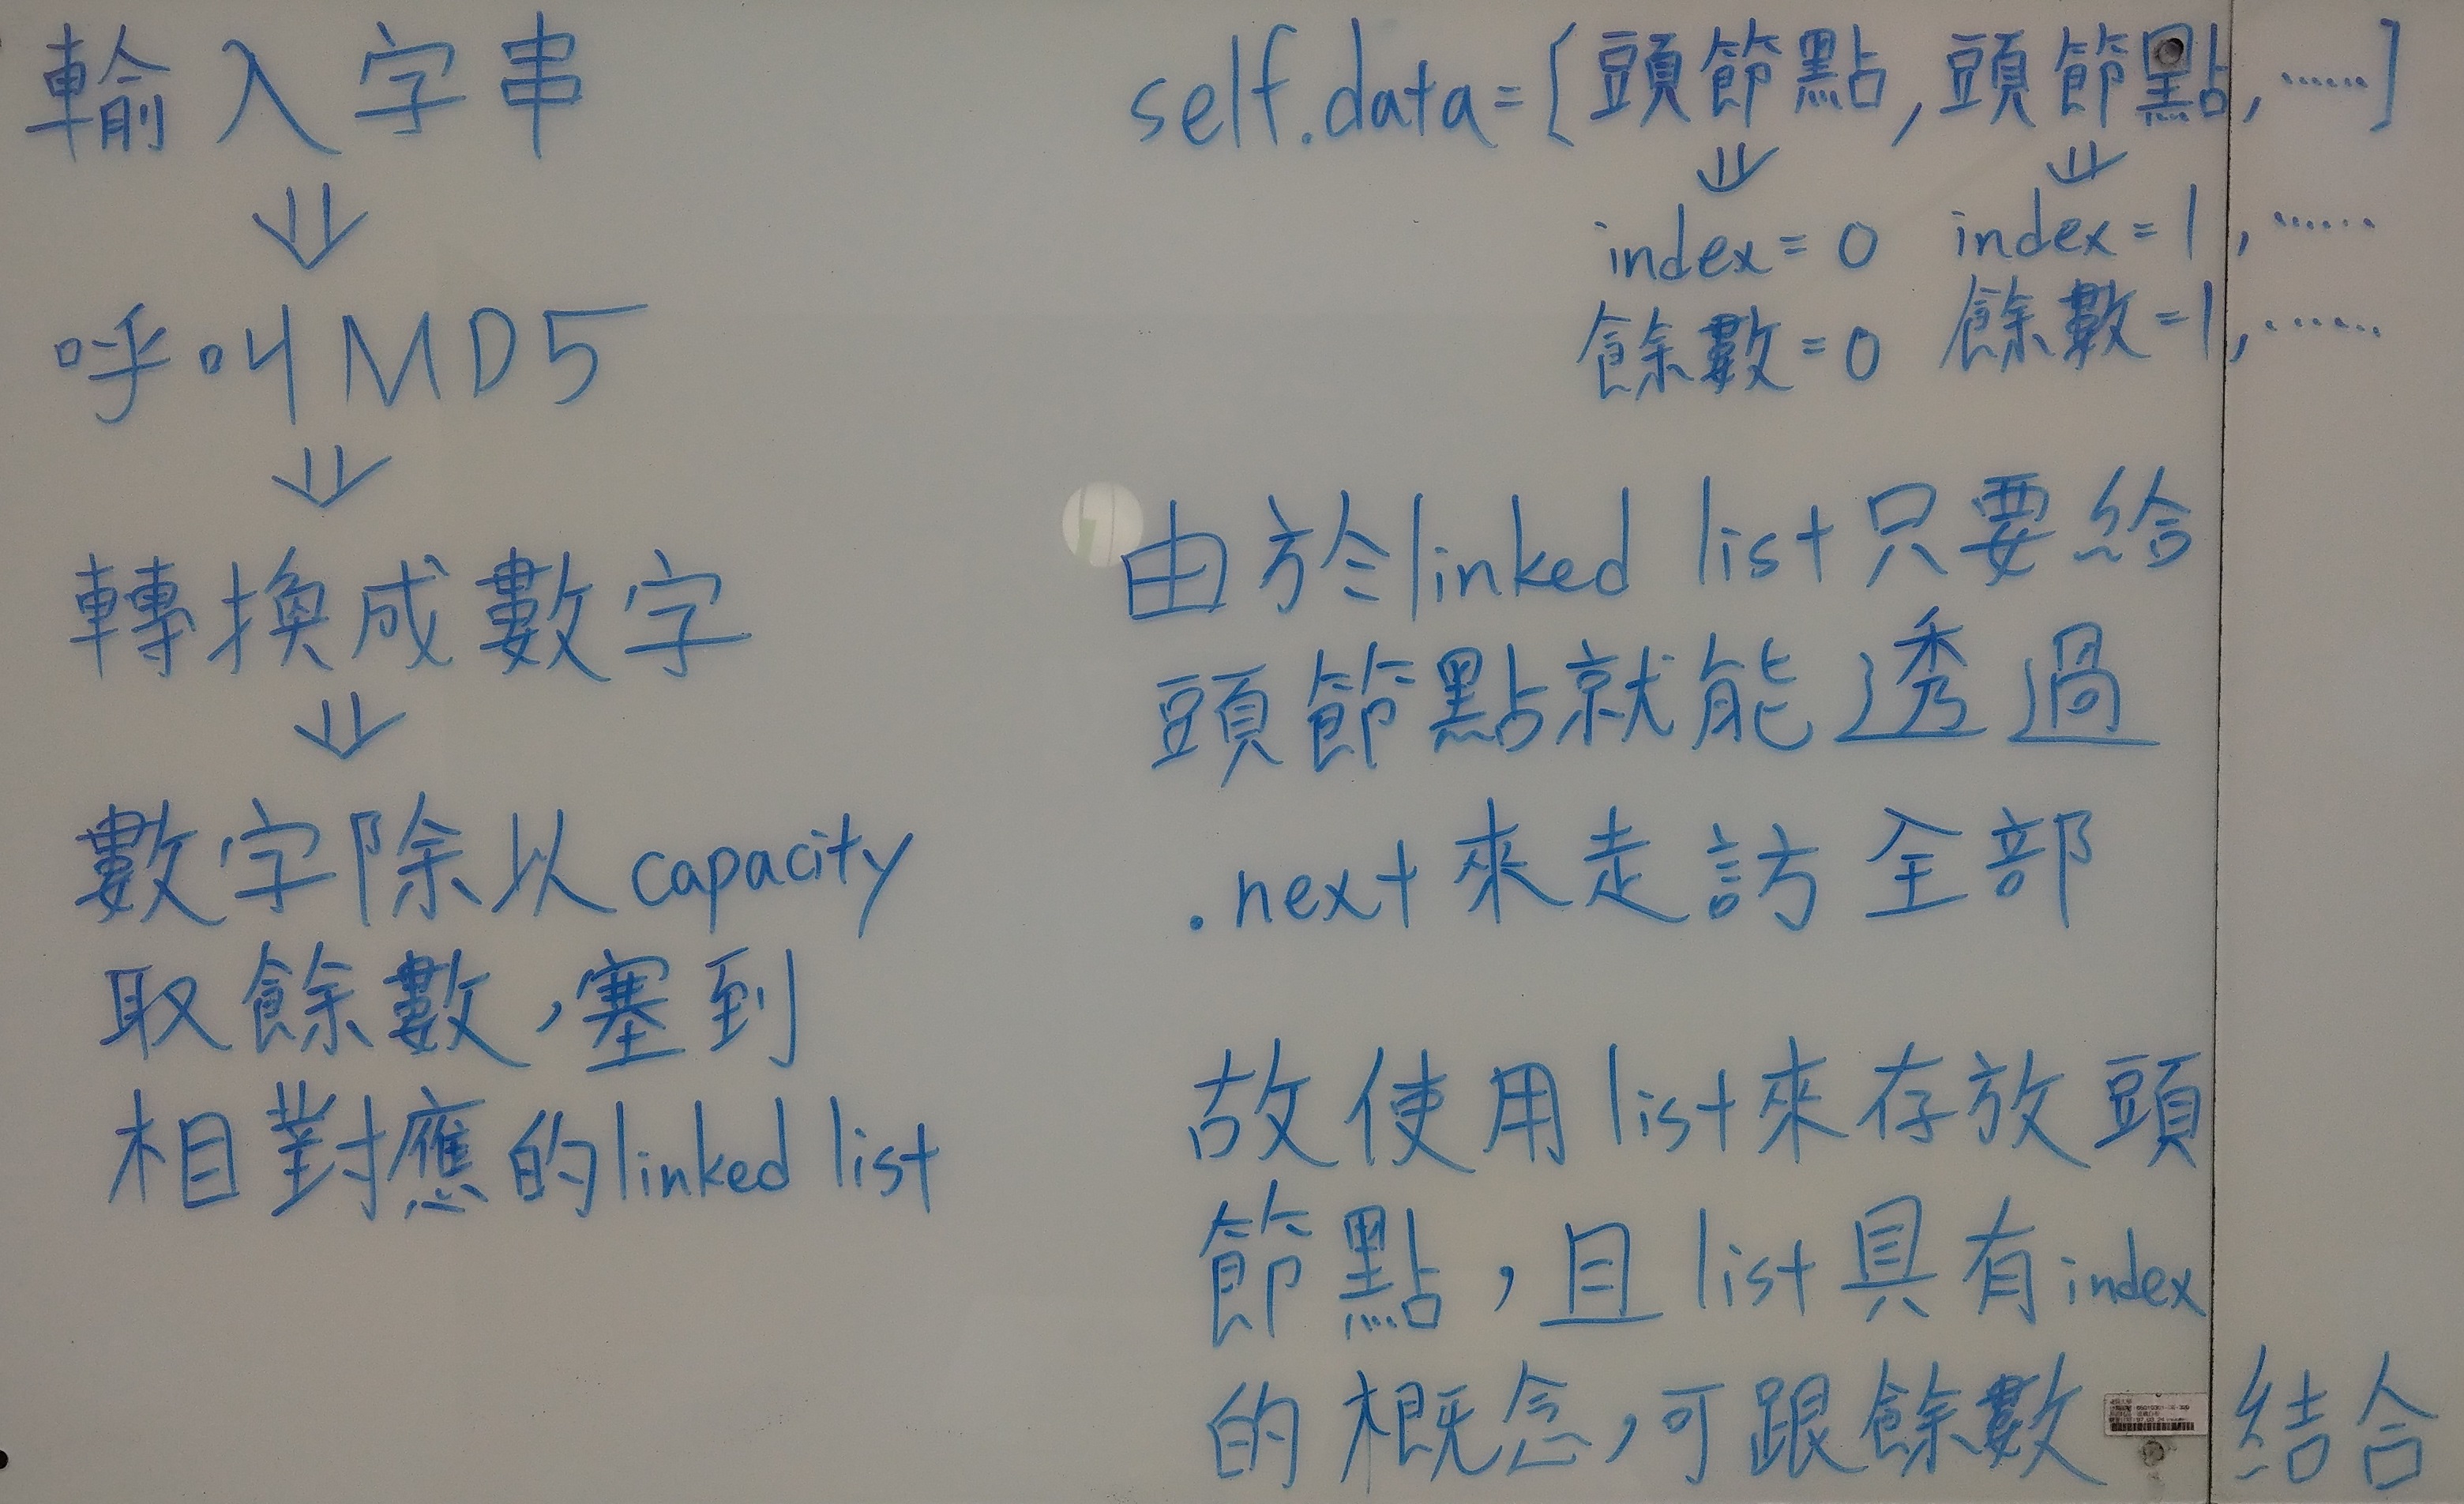 輸入字串
⇓
呼叫MD5
⇓
轉換成數字
⇓
數字除以capacity
取餘數，塞到
相對應的linked list
self.data=[頭節點,頭節點,……]
⇓ ⇓
index=0 index=1,……
餘數=0 餘數=1,……
由於linked list只要給
頭節點就能透過
.next來走訪全部
故使用list來存放頭
節點，且list具有index
的概念，可跟餘數結合